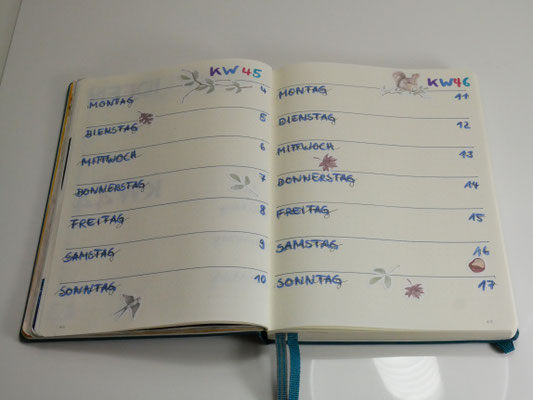 KW 45
MONTAG 4
DIENSTAG 5
MITTWOCH 6
DONNERSTAG 7
FREITAG 8
SAMSTAG 9
SONNTAG 10
KW46
MONTAG 11
DIENSTAG 12
MITTWOCH 13
DONNERSTAG 14
FREITAG 15
SAMSTAG 16
SONNTAG 17